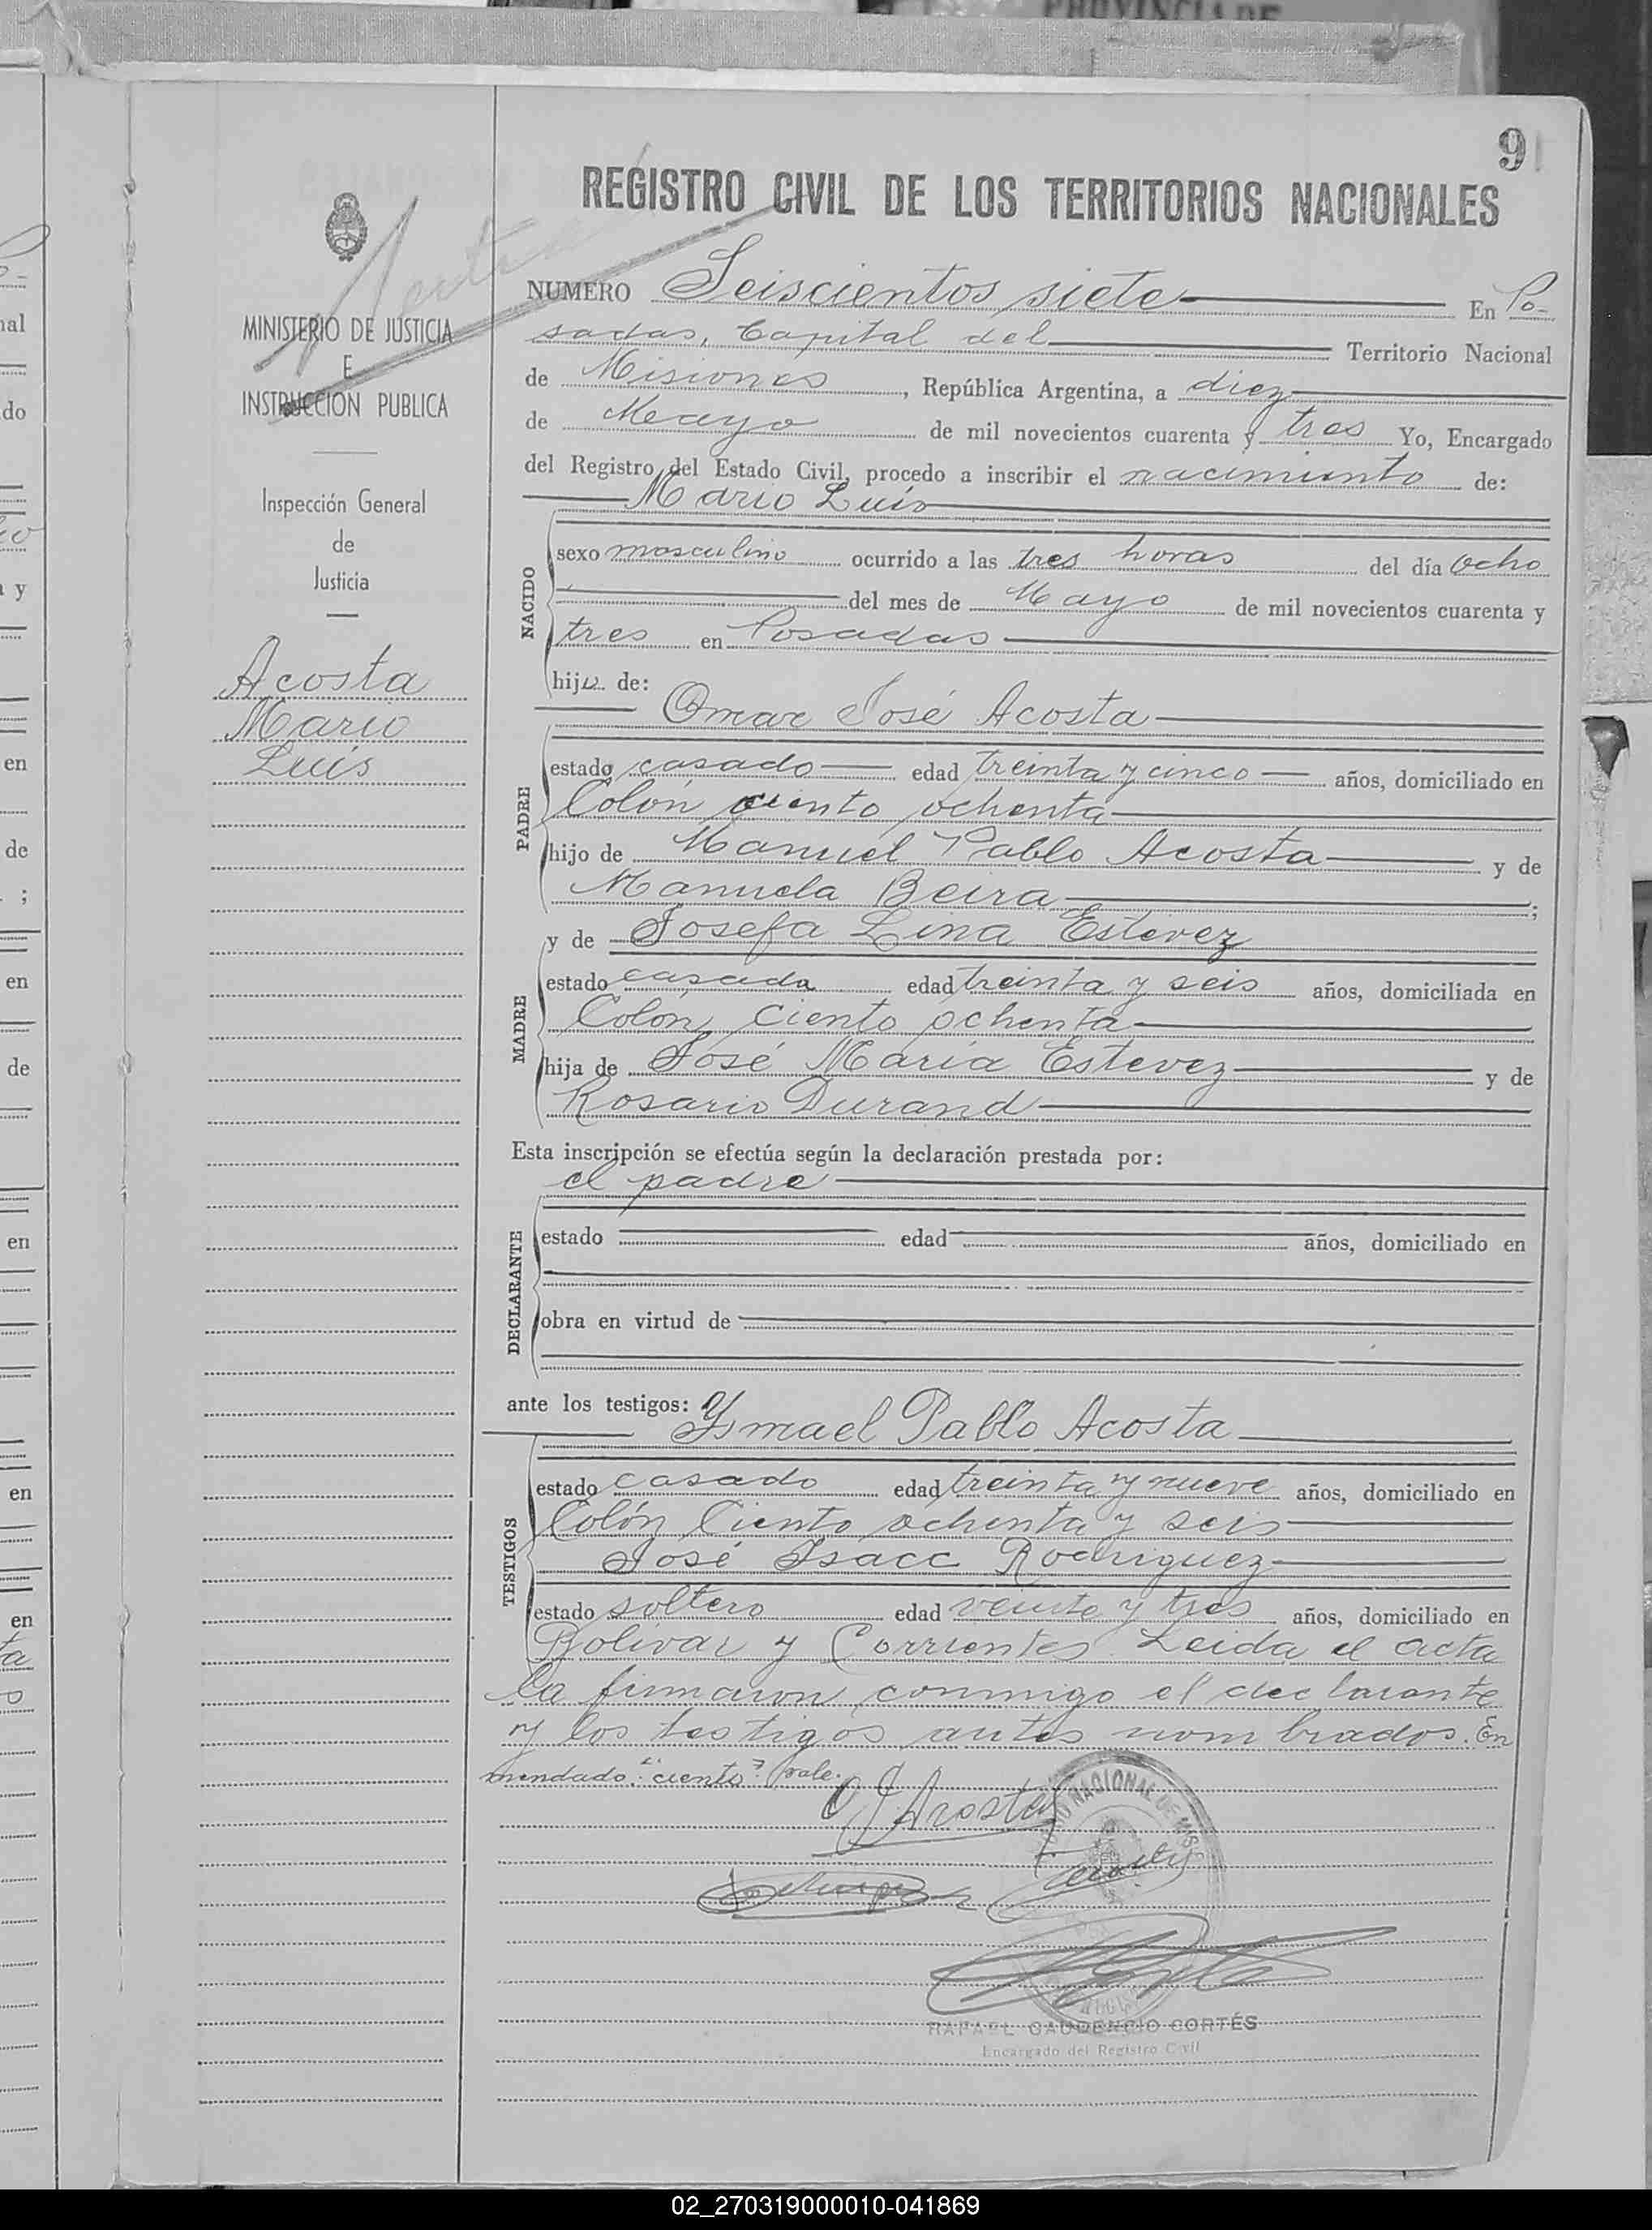 PROVINCIA DE
91
REGISTRO CIVIL DE LOS TERRITORIOS NACIONALES
MINISTERIO DE JUSTICIA
E
INSTRUCCION PUBLICA
Inspección General
de
Justicia
Acosta
Mario
Luis
NUMERO Seiscientos siete En Po-
sadas, Capital del Territorio Nacional
de Misiones, República Argentina, a diez
de Mayo de mil novecientos cuarenta y tres Yo, Encargado
del Registro del Estado Civil, procedo a inscribir el nacimiento de:
Mario Luis
NACIDO
sexo masculino ocurrido a las tres horas del día ocho
del mes de Mayo de mil novecientos cuarenta y
tres en Posadas
hijo de:
Omar José Acosta
PADRE
estado casado edad treinta y cinco años, domiciliado en
Colón ciento ochenta
hijo de Manuel Pablo Acosta y de
Manuela Beira;
y de Josefa Lina Estevez
MADRE
estado casada edad treinta y seis años, domiciliada en
Colón, ciento ochenta
hija de José María Estevez y de
Rosario Durand
Esta inscripción se efectúa según la declaración prestada por:
el padre
DECLARANTE
estado edad años, domiciliado en
obra en virtud de
ante los testigos:
Ysmael Pablo Acosta
TESTIGOS
estado casado edad treinta y nueve años, domiciliado en
Colón Ciento ochenta y seis
José Isacc Rodriguez
estado soltero edad veinte y tres años, domiciliado en
Bolivar y Corrientes. Leida el acta
la firmaron conmigo el declarante
y los testigos antes nombrados. En
mendado: "ciento". Vale.
OJAcosta
RAFAEL GAUDENCIO CORTÉS
Encargado del Registro Civil
02_270319000010-041869